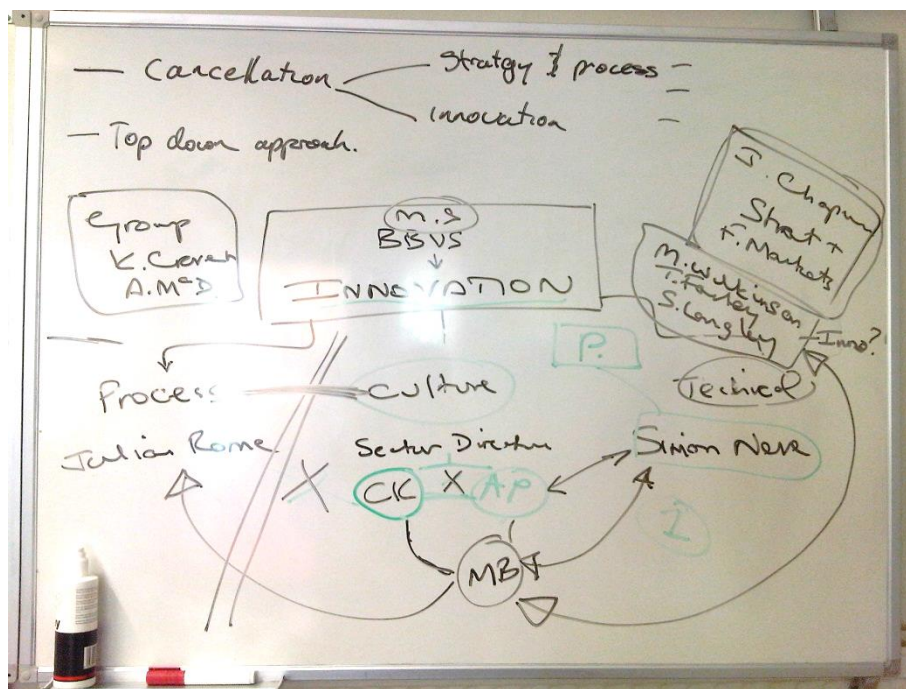 — Cancellation
Stratgy & process —
Innovation
— Top down approach.
Group
K. Craven
A. McD.
M.S
BBVS
INNOVATION
J. Chapman
Strat +
F. Markets
M. Wilkinson
T. Factory
S. Langley
Inno?
P.
Process
Culture
Technical
Julian Rome
Sector Directors
Simon Neve
X
CK
X
AP
I
MB